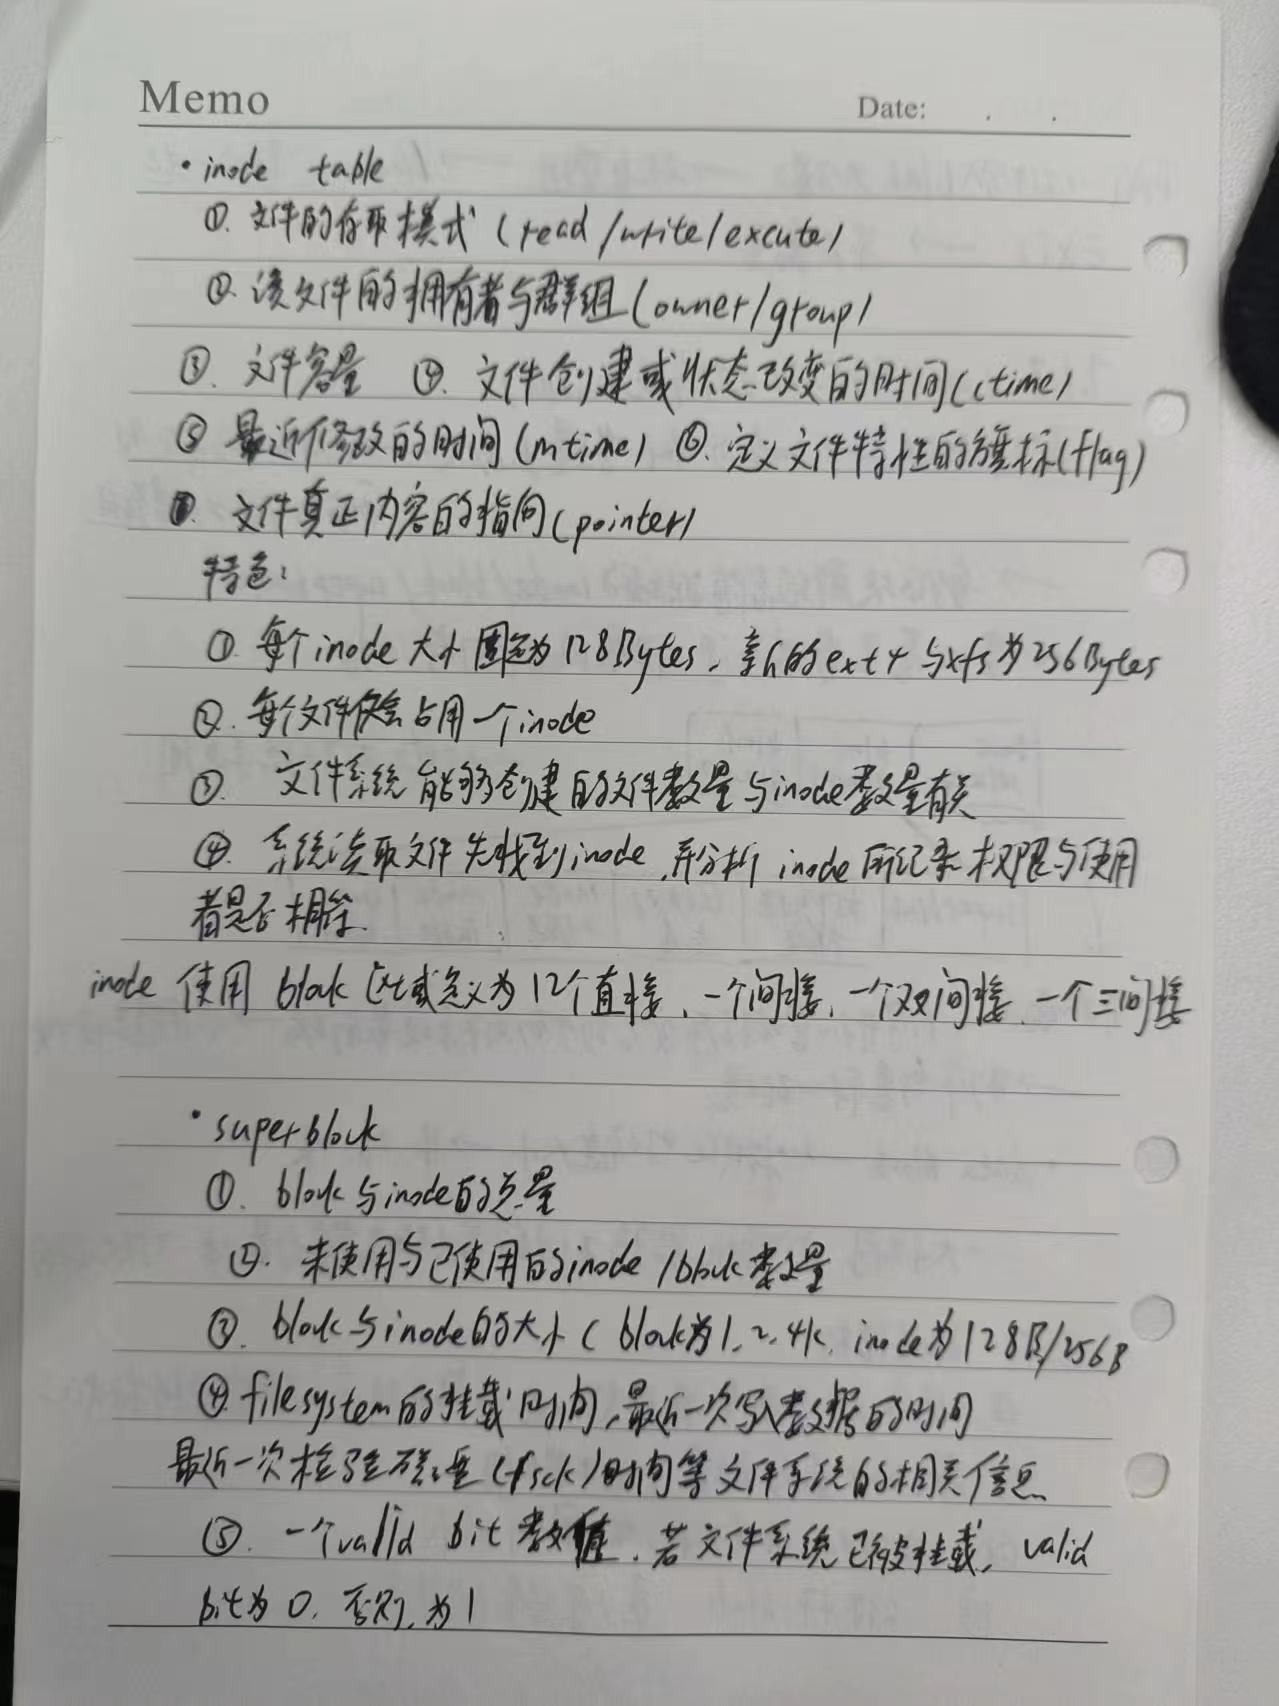 Memo
Date: . .
· inode table
①. 文件的存取模式 (read/write/excute)
②. 该文件的拥有者与群组 (owner/group)
③. 文件容量 ④. 文件创建或状态改变的时间 (ctime)
⑤ 最近修改的时间 (mtime) ⑥. 定义文件特性的旗标 (flag)
⑦. 文件真正内容的指向 (pointer)
特色:
① 每个inode大小固定为128Bytes, 新的ext4与xfs为256Bytes
②. 每个文件仅会占用一个inode
③. 文件系统能够创建的文件数量与inode数量有关
④. 系统读取文件先找到inode, 并分析inode所纪录权限与使用
者是否相符.
inode 使用 block 区域定义为12个直接、一个间接、一个双间接、一个三间接
· superblock
①. block与inode的总量
②. 未使用与已使用的inode/block数量
③. block与inode的大小 ( block为1、2、4k, inode为128B/256B
④. filesystem的挂载时间, 最近一次写入数据的时间
最近一次检验磁盘(fsck)时间等文件系统的相关信息
⑤. 一个valid bit 数值, 若文件系统已被挂载, valid
bit为0, 否则, 为1